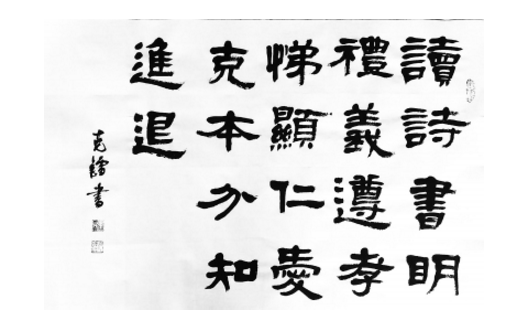 讀詩書明
禮義遵孝
悌顯仁愛
克本分知
進退
克書